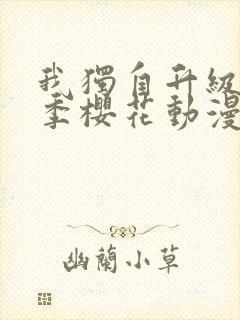 我獨自升級
季櫻花動漫
幽蘭小草